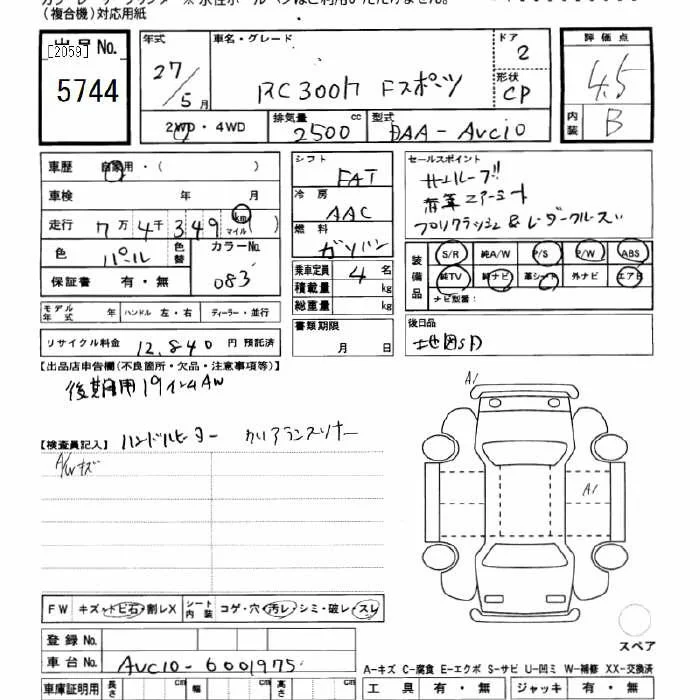 (複合機)対応用紙
出品No.
[2059]
5744
年式
27/5月
車名・グレード
RC300h Fスポーツ
ドア
2
形状
CP
2WD・4WD
排気量
2500 cc
型式
DAA-AVC10
評価点
4.5
内装
B
車歴 自家用・( )
車検 年 月
走行 7万4千349 km マイル ( )
色 パール 色替
カラーNo.
083
保証書 有・無
シフト
FAT
冷房
AAC
燃料
ガソリン
乗車定員 4 名
積載量 kg
総重量 kg
書類期限
月 日
セールスポイント
サンルーフ!!
エアーシート
プリクラッシュ&レーダークルーズ
装備品
S/R 純A/W P/S P/W ABS
純TV 純ナビ 革シート 外ナビ エアB
ナビ型番:
後日品
地図SD
モデル年式 年 ハンドル 左・右 ディーラー・並行
リサイクル料金 12,840 円 預託済
【出品店申告欄(不良箇所・欠品・注意事項等)】
後期用19インチAW
【検査員記入】 ハンドルヒーター クリアランスソナー
A/Wキズ
A1
A1
FW キズ・トビ石・割レX シート内装 コゲ・穴・汚レ・シミ・破レ・スレ
スペア
登録No.
車台No. AVC10-6001975
A-キズ C-腐食 E-エクボ S-サビ U-凹ミ W-補修 XX-交換済
車庫証明用 長さ cm 幅 cm 高さ cm
工具 有・無 ジャッキ 有・無